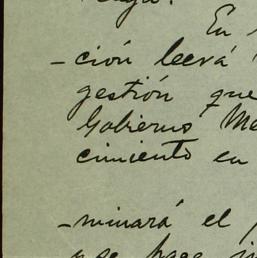 En
-ción leerá
gestión que
Gobierno Me
cimiento en
-minará el
y se hace in